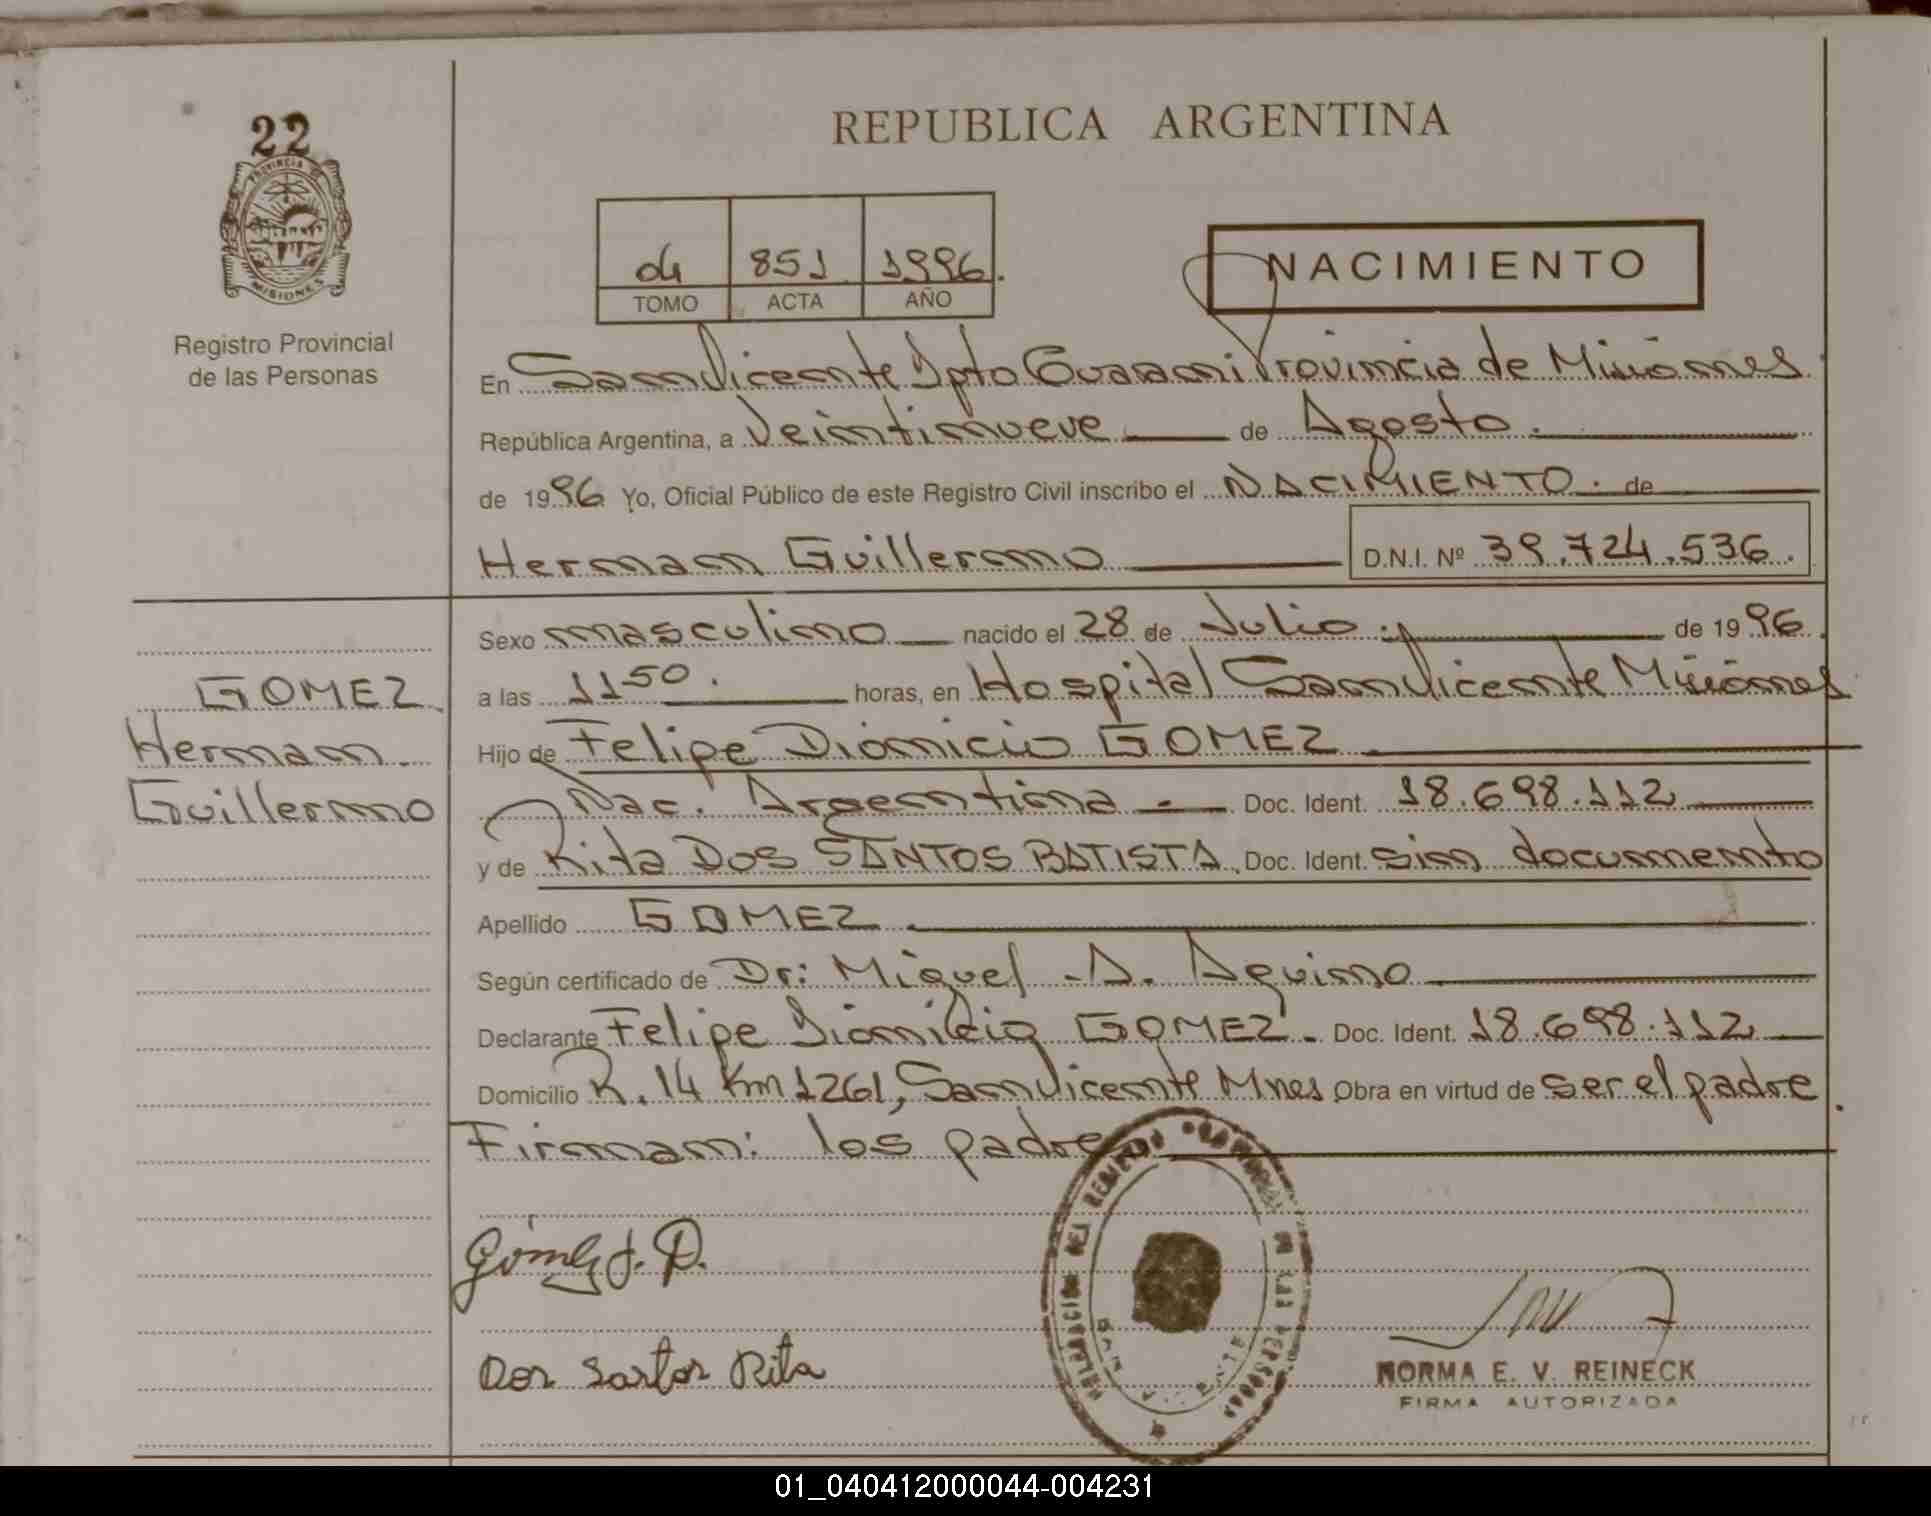 22
PROVINCIA DE
MISIONES
Registro Provincial
de las Personas
REPUBLICA ARGENTINA
04 851 1996.
TOMO ACTA AÑO
NACIMIENTO
En San Vicente Dpto Guarani Provincia de Misiones
República Argentina, a Veintinueve de Agosto.
de 1996 Yo, Oficial Público de este Registro Civil inscribo el NACIMIENTO. de
Hernan Guillermo D.N.I. Nº 39.724.536.
Sexo masculino nacido el 28 de Julio. de 1996.
a las 11 50. horas, en Hospital San Vicente Misiones
Hijo de Felipe Dionicio GOMEZ
Nac. Argentina - Doc. Ident. 18.698.112
y de Rita DOS SANTOS BATISTA. Doc. Ident. sin documento
Apellido GOMEZ
Según certificado de Dr: Miguel A. Aquino
Declarante Felipe Dionicio GOMEZ. Doc. Ident. 18.698.112
Domicilio R. 14 Km 1261, San Vicente Mnes Obra en virtud de ser el padre.
Firman: los padre
GOMEZ
Hernan
Guillermo
Gómez F. D.
Dos Santos Rita
DELEGACION DEL REGISTRO PROVINCIAL DE LAS PERSONAS
NORMA E. V. REINECK
FIRMA AUTORIZADA
01_040412000044-004231